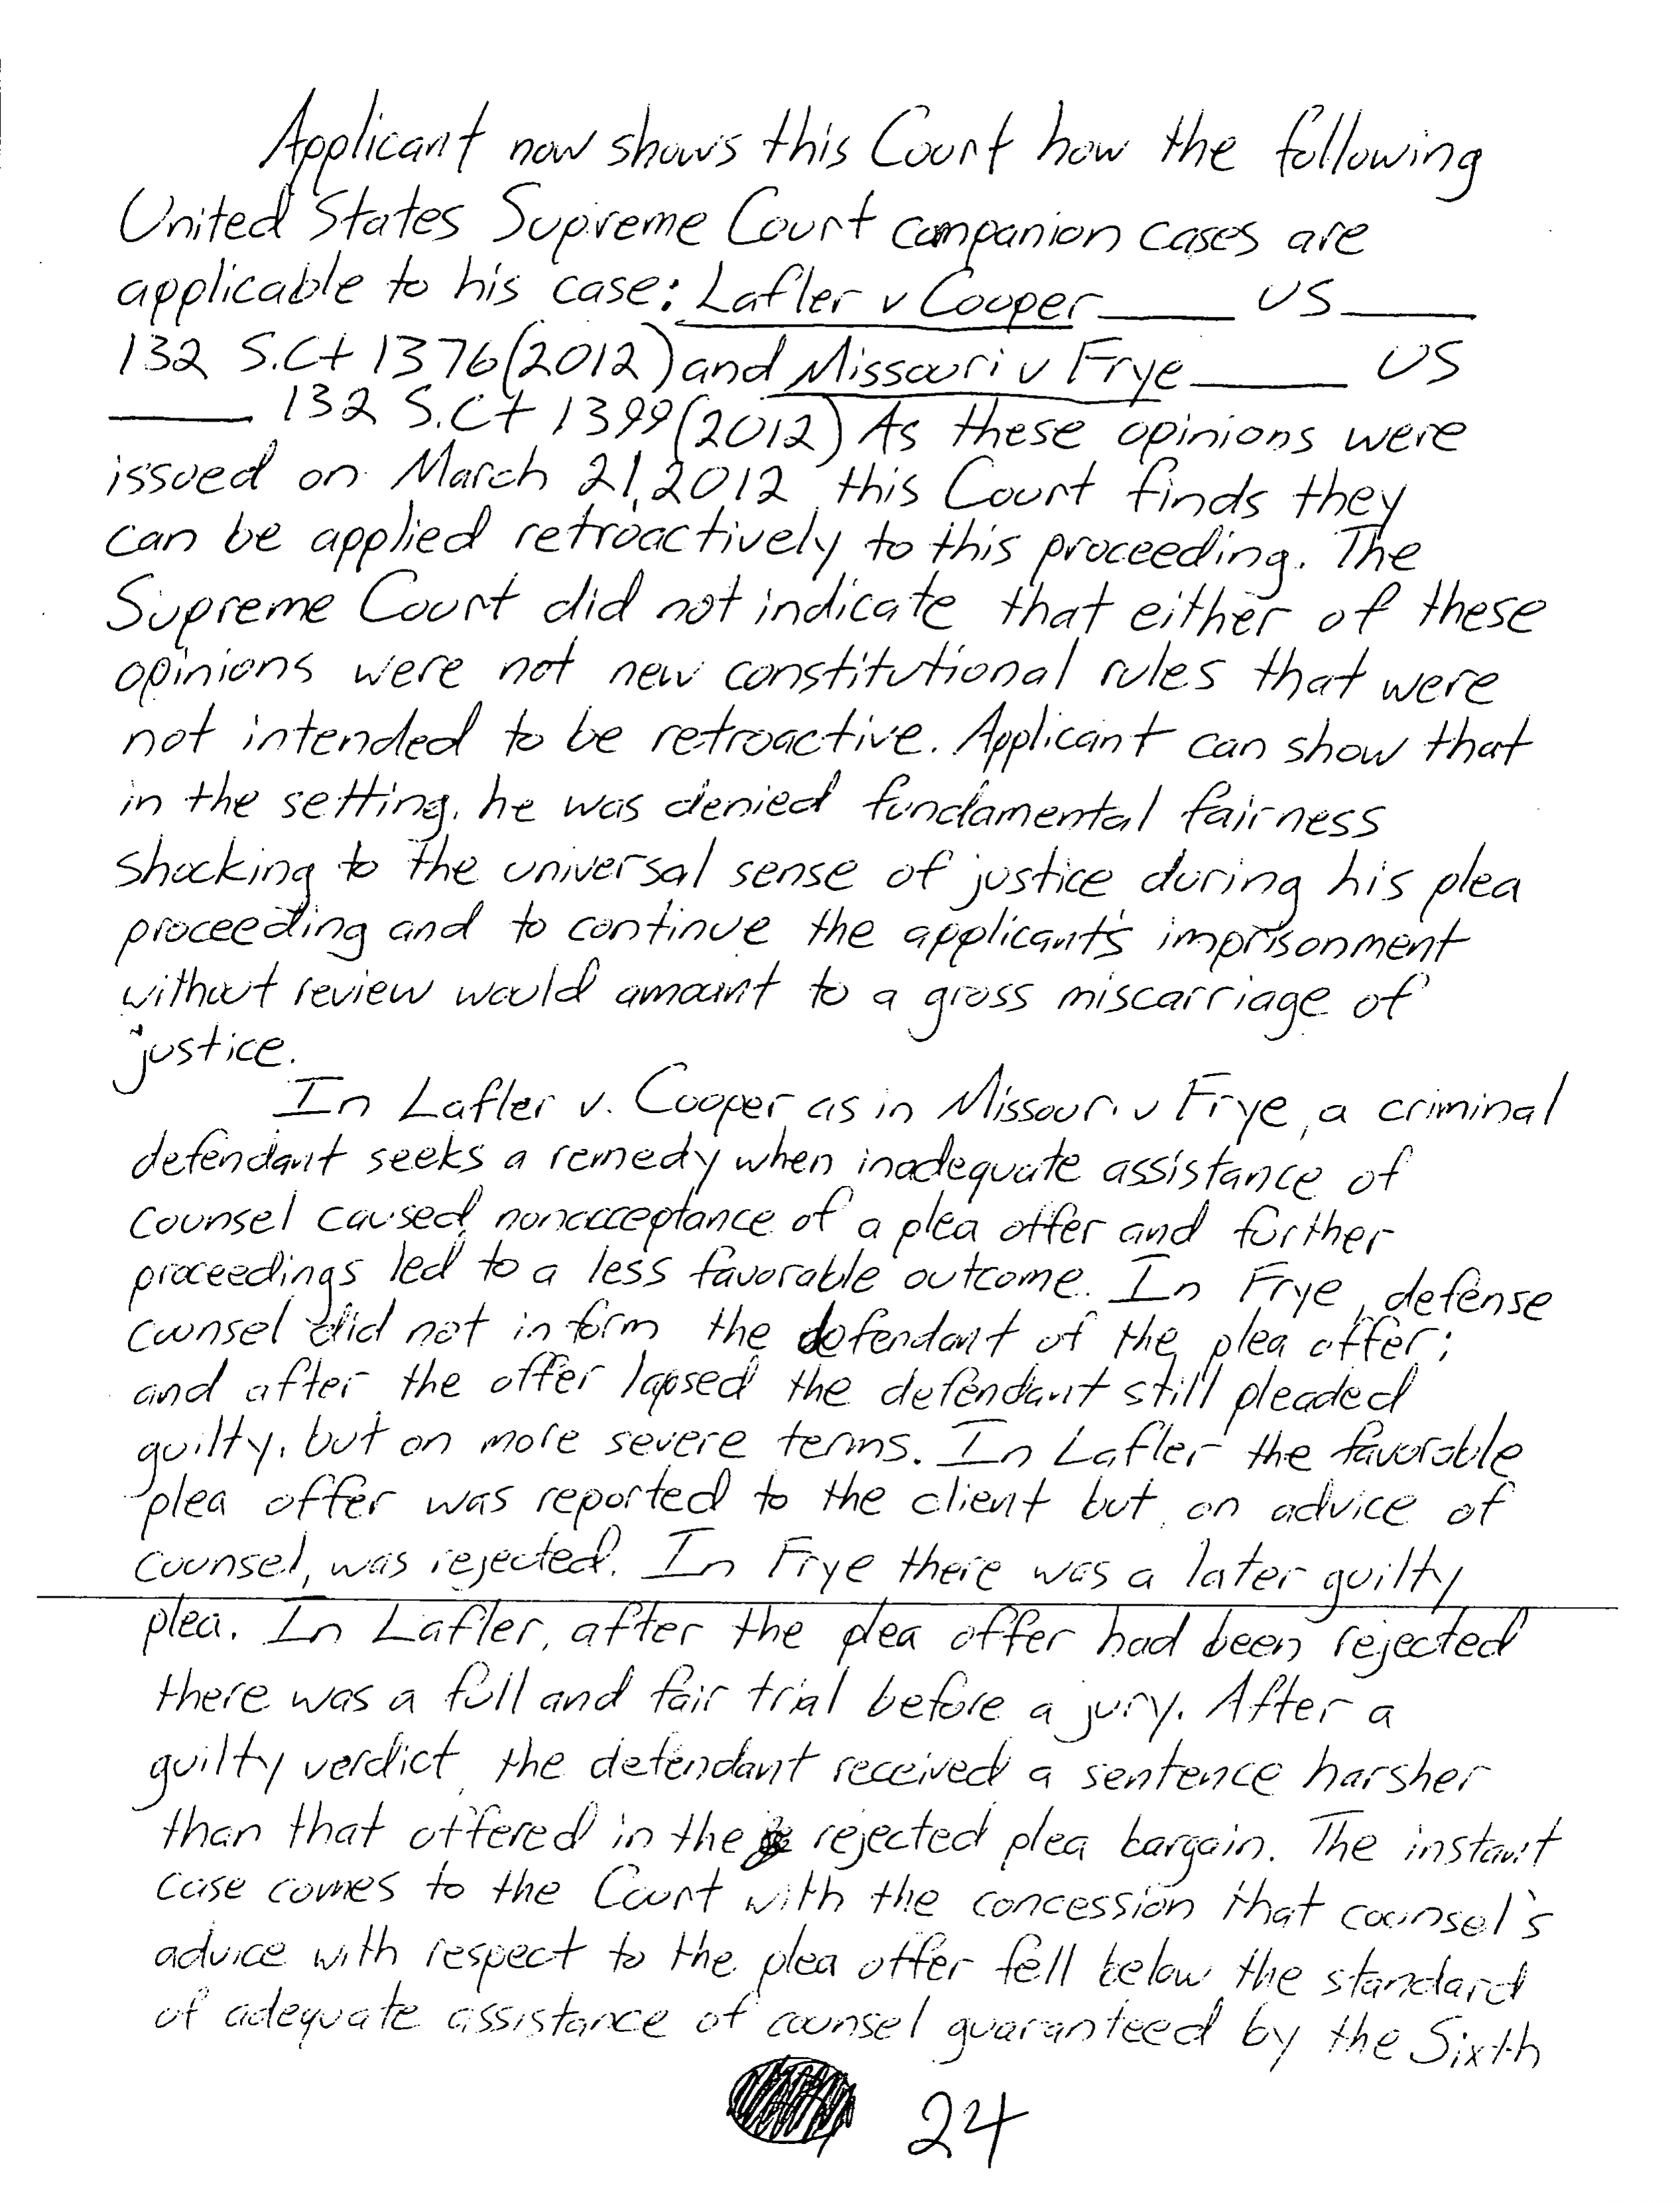 Applicant now shows this Court how the following
United States Supreme Court companion cases are
applicable to his case: Lafler v Cooper ____ US ____
132 S.Ct 1376 (2012) and Missouri v Frye ____ US
____ 132 S.Ct 1399 (2012) As these opinions were
issued on March 21, 2012, this Court finds they
can be applied retroactively to this proceeding. The
Supreme Court did not indicate that either of these
opinions were not new constitutional rules that were
not intended to be retroactive. Applicant can show that
in the setting, he was denied fundamental fairness
shocking to the universal sense of justice during his plea
proceeding and to continue the applicant's imprisonment
without review would amount to a gross miscarriage of
justice.
In Lafler v. Cooper as in Missouri v Frye, a criminal
defendant seeks a remedy when inadequate assistance of
counsel caused nonacceptance of a plea offer and further
proceedings led to a less favorable outcome. In Frye, defense
counsel did not inform the defendant of the plea offer;
and after the offer lapsed the defendant still pleaded
guilty, but on more severe terms. In Lafler the favorable
plea offer was reported to the client but, on advice of
counsel, was rejected. In Frye there was a later guilty
plea. In Lafler, after the plea offer had been rejected
there was a full and fair trial before a jury. After a
guilty verdict, the defendant received a sentence harsher
than that offered in the rejected plea bargain. The instant
case comes to the Court with the concession that counsel's
advice with respect to the plea offer fell below the standard
of adequate assistance of counsel guaranteed by the Sixth
24